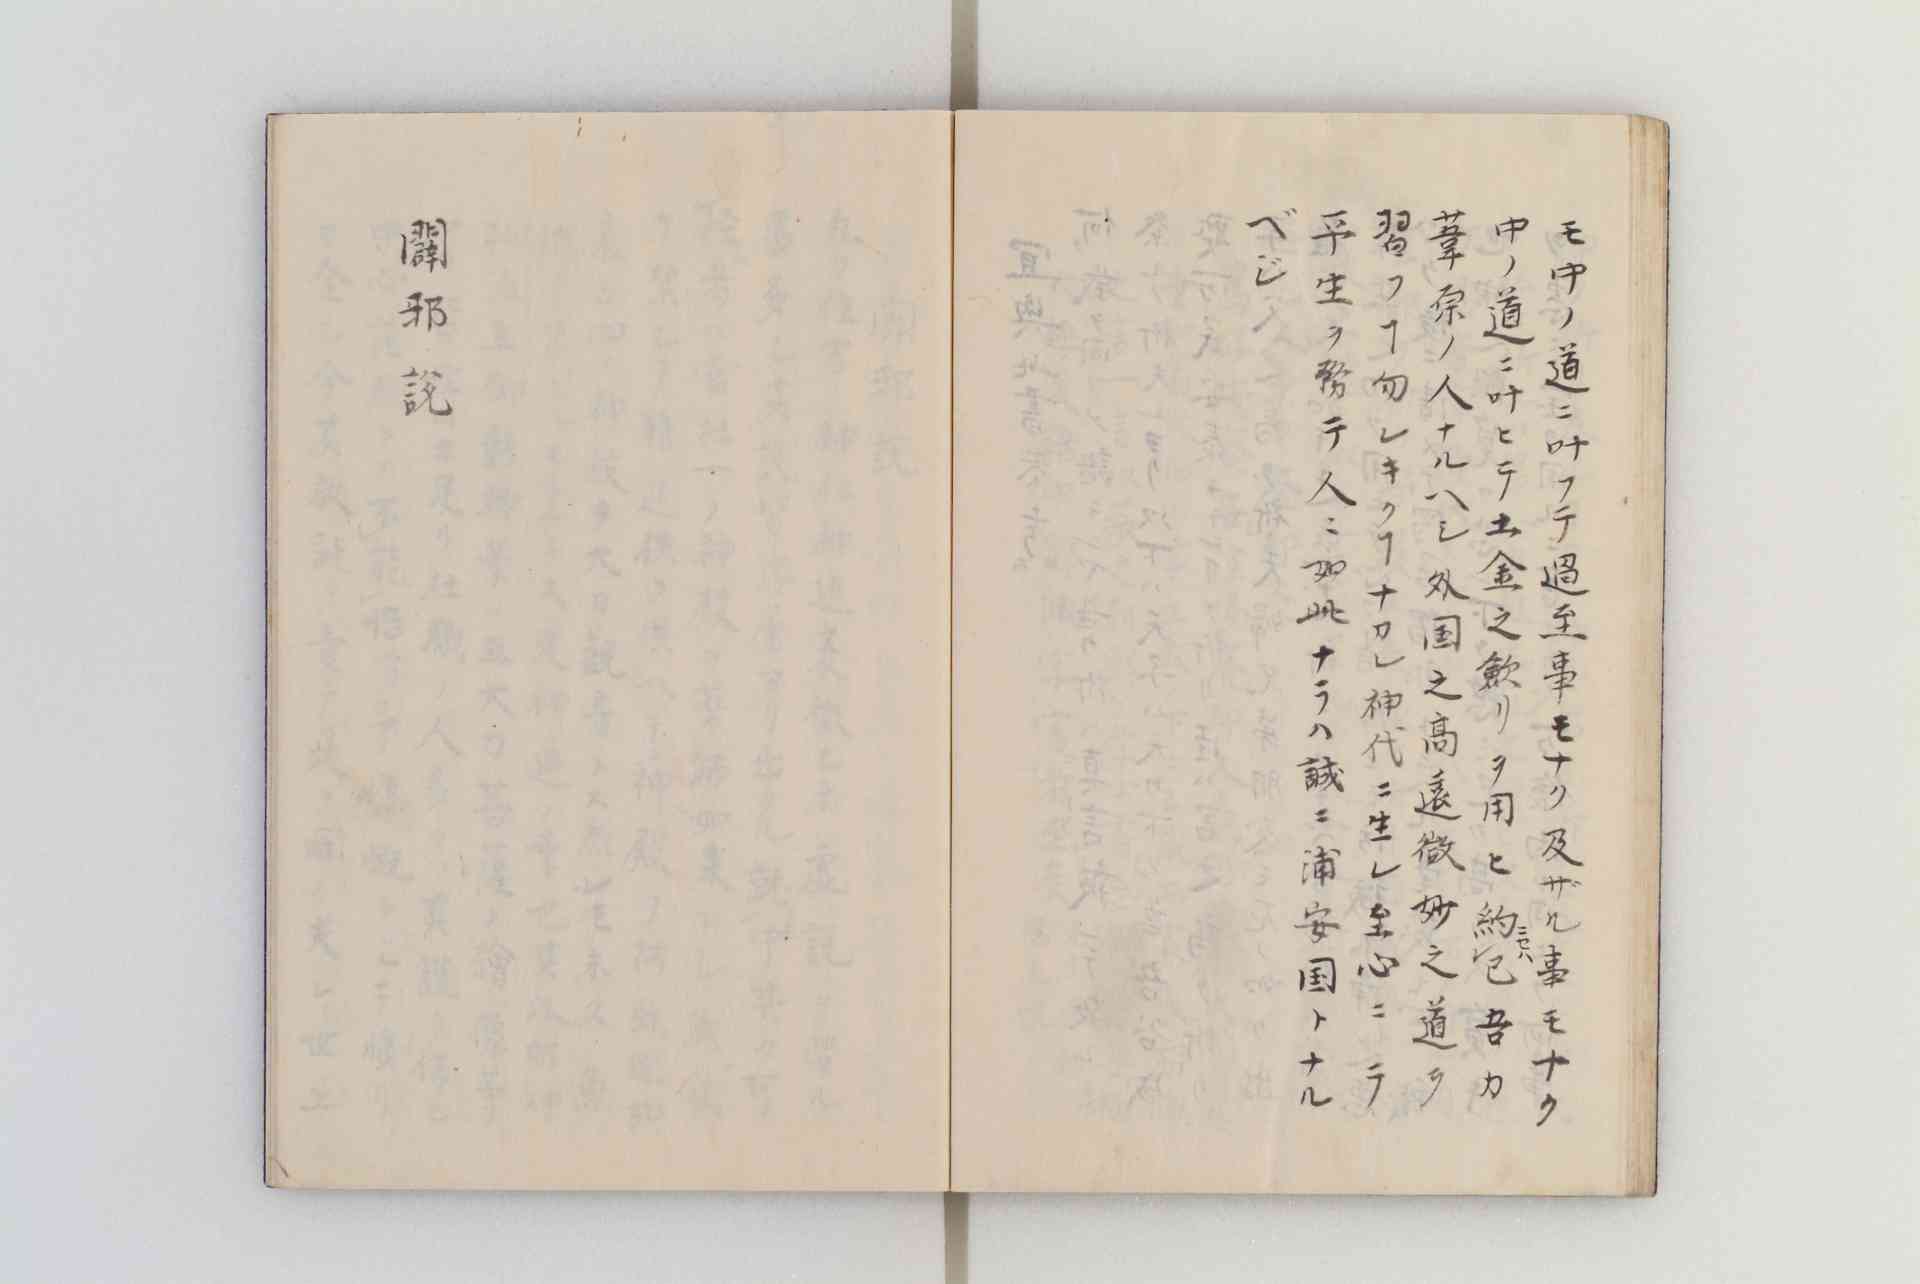 モ中ノ道ニ叶フテ過至事モナク及ザル事モナク
中ノ道ニ叶ヒテ土金之歛リヲ用ヒ約ニセハレ已吾カ
葦原ノ人ナルヘシ外国之高遠微妙之道ヲ
習フヿ勿レキクヿナカレ神代ニ生レ至心ニテ
平生ヲ務テ人ニ如此ナラハ誠ニ浦安国トナル
ベシ
闢邪説